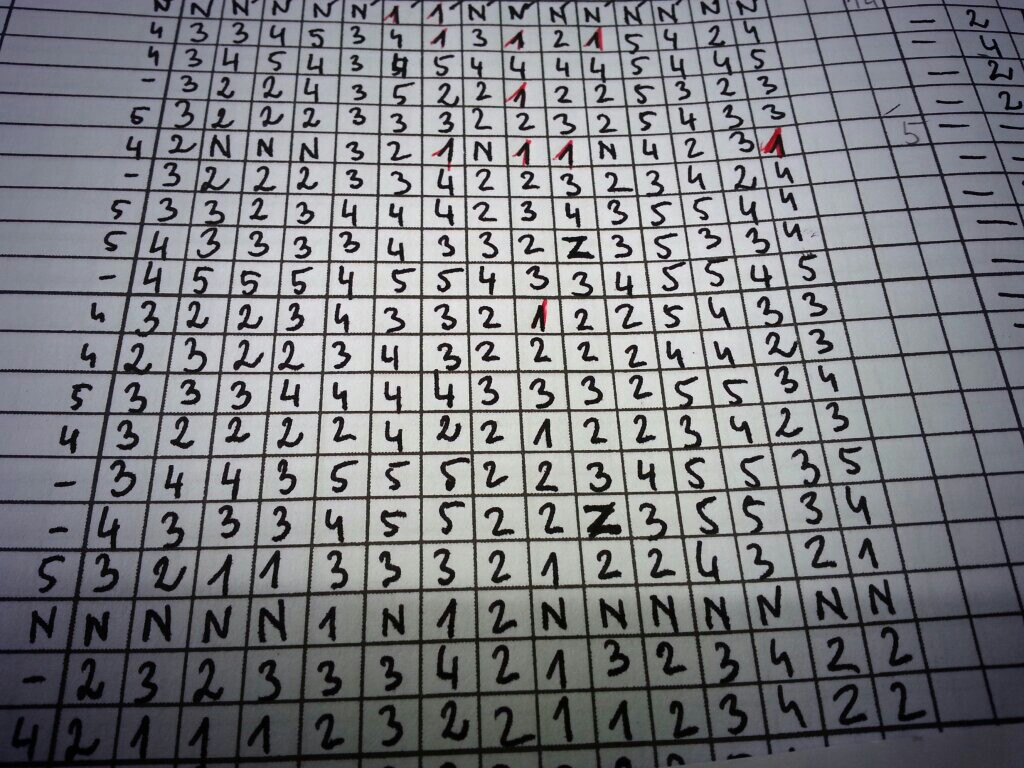 N N N N N 1 1 N N N N N N N N
4 3 3 4 5 3 4 1 3 1 2 1 5 4 2 4 — 2
4 3 4 5 4 3 4 5 4 4 4 4 5 4 4 5 — 4
- 3 2 2 4 3 5 2 2 1 2 2 5 3 2 3 — 2
3 2 2 2 3 3 3 2 2 3 2 5 4 3 3 — 2
4 2 N N N 3 2 1 N 1 1 N 4 2 3 1 5 —
- 3 2 2 2 3 3 4 2 2 3 2 3 4 2 4 —
5 3 3 2 3 4 4 4 2 3 4 3 5 5 4 4 —
5 4 3 3 3 3 4 3 3 2 Z 3 5 3 3 4 —
- 4 5 5 5 4 5 5 4 3 3 4 5 5 4 5 —
4 3 2 2 3 4 3 3 2 1 2 2 5 4 3 3
4 2 3 2 2 3 4 3 2 2 2 2 4 4 2 3
5 3 3 3 4 4 4 4 3 3 3 2 5 5 3 4
4 3 2 2 2 2 4 2 2 1 2 2 3 4 2 3
- 3 4 4 3 5 5 5 2 2 3 4 5 5 3 5
- 4 3 3 3 4 5 5 2 2 Z 3 5 5 3 4
5 3 2 1 1 3 3 3 2 1 2 2 4 3 2 1
N N N N N 1 N 1 2 N N N N N N N
- 2 3 2 3 3 3 4 2 1 3 2 3 4 2 2
4 2 1 1 1 2 3 2 2 1 1 2 3 4 2 2